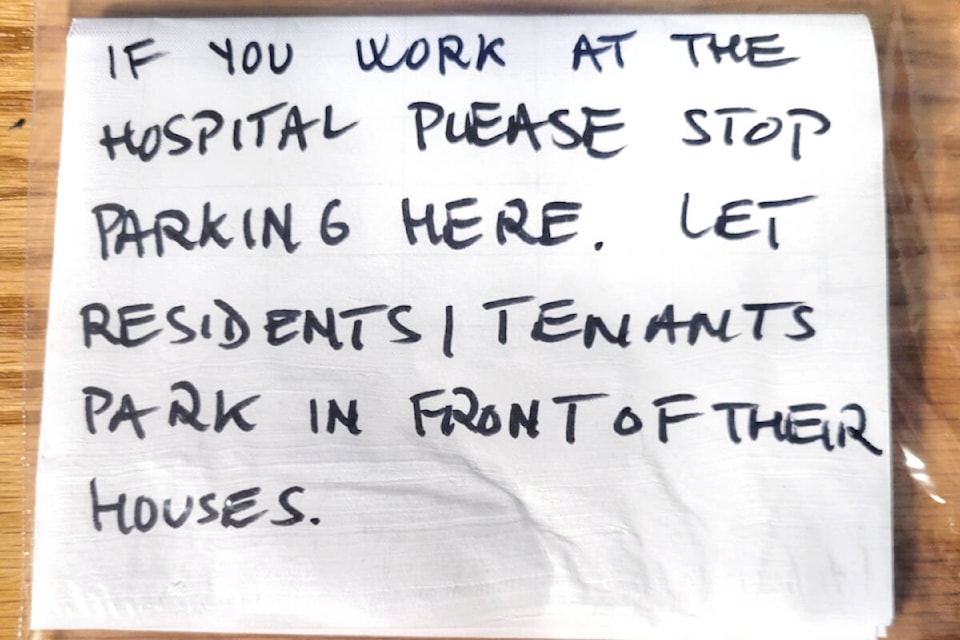 IF YOU WORK AT THE
HOSPITAL PLEASE STOP
PARKING HERE. LET
RESIDENTS/TENANTS
PARK IN FRONT OF THEIR
HOUSES.